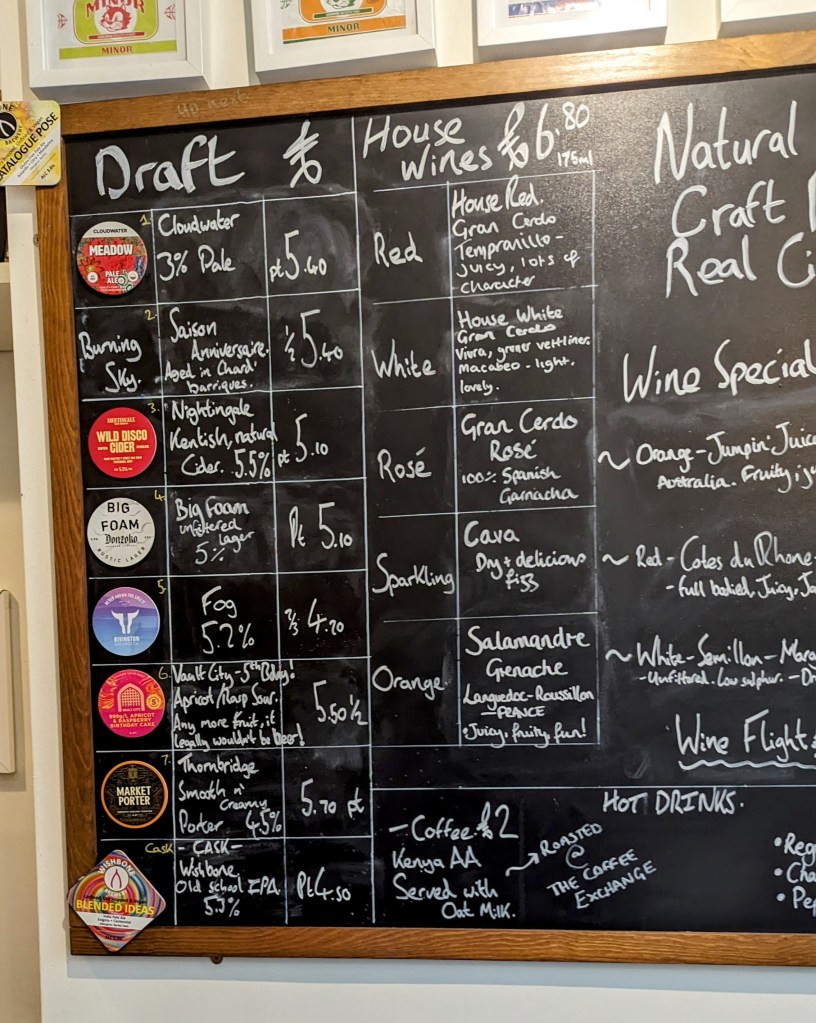 MINOR
MINOR
MINOR
CATALOGUE POSE
Up next
Draft £
1.
CLOUDWATER
MEADOW
PALE ALE
Cloudwater
3% Pale
pt 5.40
2.
Burning
Sky.
Saison
Anniversaire.
Aged in Chard
barriques.
1/2 5.40
3.
NIGHTINGALE
WILD DISCO
CIDER
Nightingale
Kentish, natural
Cider. 5.5%
pt 5.10
4.
BIG
FOAM
Donzoko
RUSTIC LAGER
Big Foam
unfiltered
lager
5%
Pt 5.10
5.
RIVINGTON
Fog
5.2%
2/3 4.20
6.
VAULT CITY
APRICOT
& RASPBERRY
BIRTHDAY CAKE
Vault City - 5th Bday!
Apricot/Rasp Sour.
Any more fruit, it
legally wouldn't be beer!
5.50 1/2
7.
MARKET
PORTER
Thornbridge
Smooth n'
Creamy
Porter 4.5%
5.70 pt
Cask
WISHBONE
BLENDED IDEAS
- CASK -
Wishbone
Old school IPA.
5.3%
Pt 4.50
House
Wines £6.80
175ml
Red
House Red.
Gran Cerdo
Tempranillo -
Juicy, lots of
character
White
House White
Gran Cerdo
Viura, gruner veltliner,
Macabeo - light.
lovely.
Rosé
Gran Cerdo
Rosé
100% Spanish
Garnacha
Sparkling
Cava
Dry + delicious
fizz
Orange
Salamandre
Grenache
Languedoc-Roussillon
- FRANCE
Juicy, fruity fun!
Natural
Craft
Real Ci
Wine Special
~ Orange - Jumpin' Juice
Australia. Fruity, ju
~ Red - Cotes du Rhone.
- full bodied, Juicy, Ja
~ White - Semillon - Mara
- Unfiltered. Low sulphur. - Dr
Wine Flight
HOT DRINKS.
- Coffee £2
Kenya AA
Served with
Oat Milk.
ROASTED
@
THE COFFEE
EXCHANGE
• Reg
• Cha
• Pep